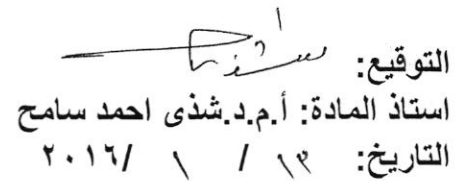 التوقيع:
استاذ المادة: أ.م.د.شذى احمد سامح
التاريخ: ١٣ / ١ /٢٠١٦